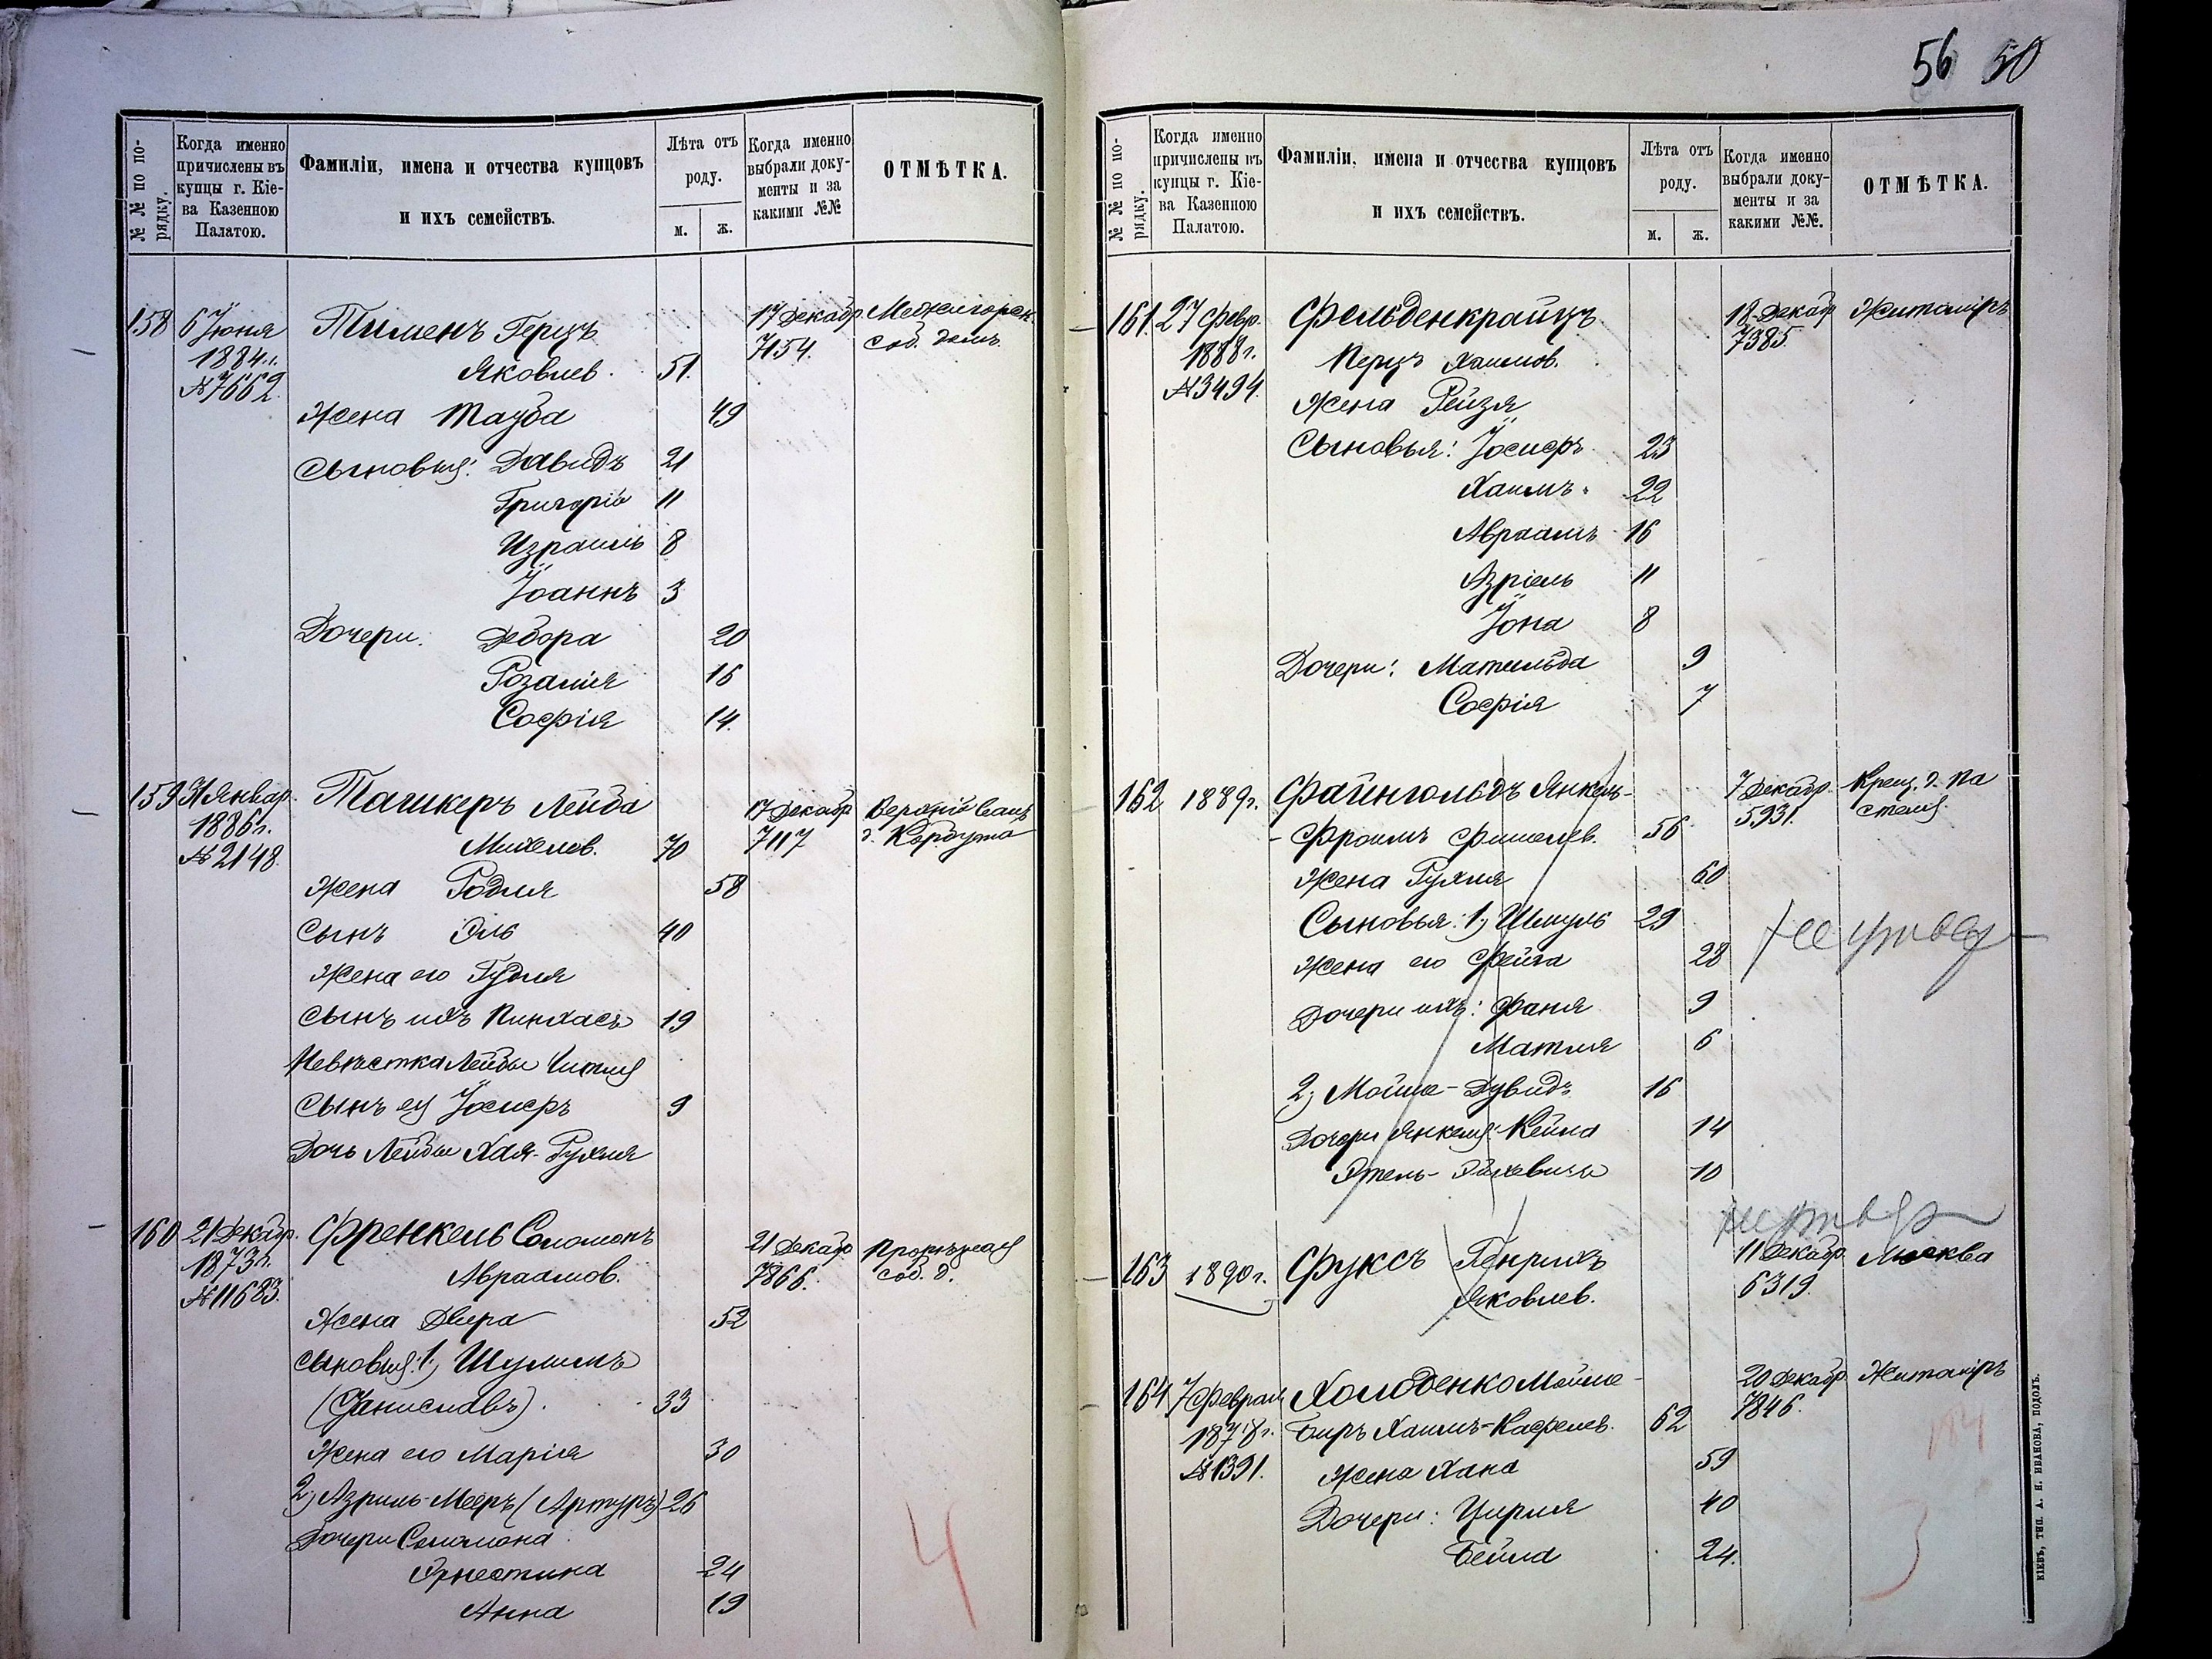 56 50
№ № по по-
рядку.
Когда именно
причислены въ
купцы г. Кіе-
ва Казенною
Палатою.
Фамиліи, имена и отчества купцовъ
и ихъ семействъ.
Лѣта отъ
роду.
м. ж.
Когда именно
выбрали доку-
менты и за
какими №№
ОТМѢТКА.
158 6 Іюня Тименъ Герцъ 17 Декабр. Межигорск.
1884 г. Яковлев. 51. 7154. соб. домъ.
№7662.
Жена Тауба 49
Сыновья: Давидъ 21
Григорій 11
Израиль 8
Іоаннъ 3
Дочери: Дебора 20
Розалія 16
Софія 14.
159 31 Январ. Ташкеръ Лейба 17 Декабр. Верхній Валъ
1886 г. Михелев. 70 7117 д. Корбута
№2148.
Жена Годля 58
Сынъ Эль 40
Жена его Гудля
Сынъ ихъ Пинхасъ 19
Невѣстка Лейбы
Сынъ ея Іосифъ 9
Дочь Лейбы Хая-Рухля
160 21 Декабр. Френкель Соломонъ 21 Декабр. Прорѣзная
1873 г. Авраамов. 7866. соб. д.
№11683.
Жена Двера 52
Сыновья: 1, Шулимъ
(Станиславъ). 33
Жена его Марія 30
2, Азриль-Мееръ (Артуръ) 26
Дочери Соломона
Эрнестина 24
Анна 19
4
№ № по по-
рядку.
Когда именно
причислены въ
купцы г. Кіе-
ва Казенною
Палатою.
Фамиліи, имена и отчества купцовъ
и ихъ семействъ.
Лѣта отъ
роду.
м. ж.
Когда именно
выбрали доку-
менты и за
какими №№.
ОТМѢТКА.
161 27 Февр. Фельденкрайцъ 18 Декабр. Житоміръ
1888 г. Перцъ Хаимов. 7385.
№3494.
Жена Рейзя
Сыновья: Іосифъ 23
Хаимъ 22
Авраамъ 16
Азріель 11
Іона 8
Дочери: Матильда 9
Софія 7
162 1889 г. Файнгольдъ Янкель- 7 Декабр. Крещ. д. Па
-Фроимъ Фишелев. 56 5931. стеля
Жена Рухля 60
Сыновья: 1, Шмуль 29
Жена его Фейга 28
Дочери ихъ: Фаня 9
Матля 6
2, Мойше-Дувидъ 16
Дочери Янкеля: Кейла 14
Этель- 10
163 1890 г. Фуксъ Генрихъ 11 Декабр. Москва
Яковлев. 6319.
164 7 Феврал. Холоденко Мойше- 20 Декабр. Житоміръ
1878 г. Беръ Хаимъ-Кафелев. 62 7846.
№1391. Жена Хана 59
Дочери: Цирля 40
Бейла 24.
КІЕВЪ, ТИП. А. Н. ИВАНОВА, ПОДОЛЪ.